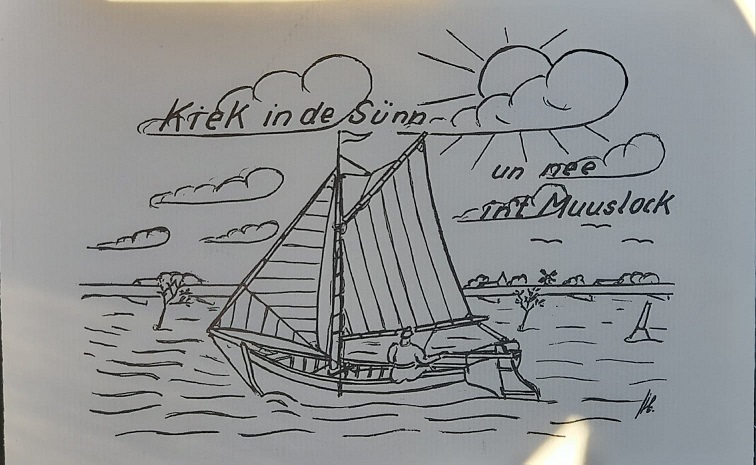 Kiek in de Sünn
un nee
int Muuslock